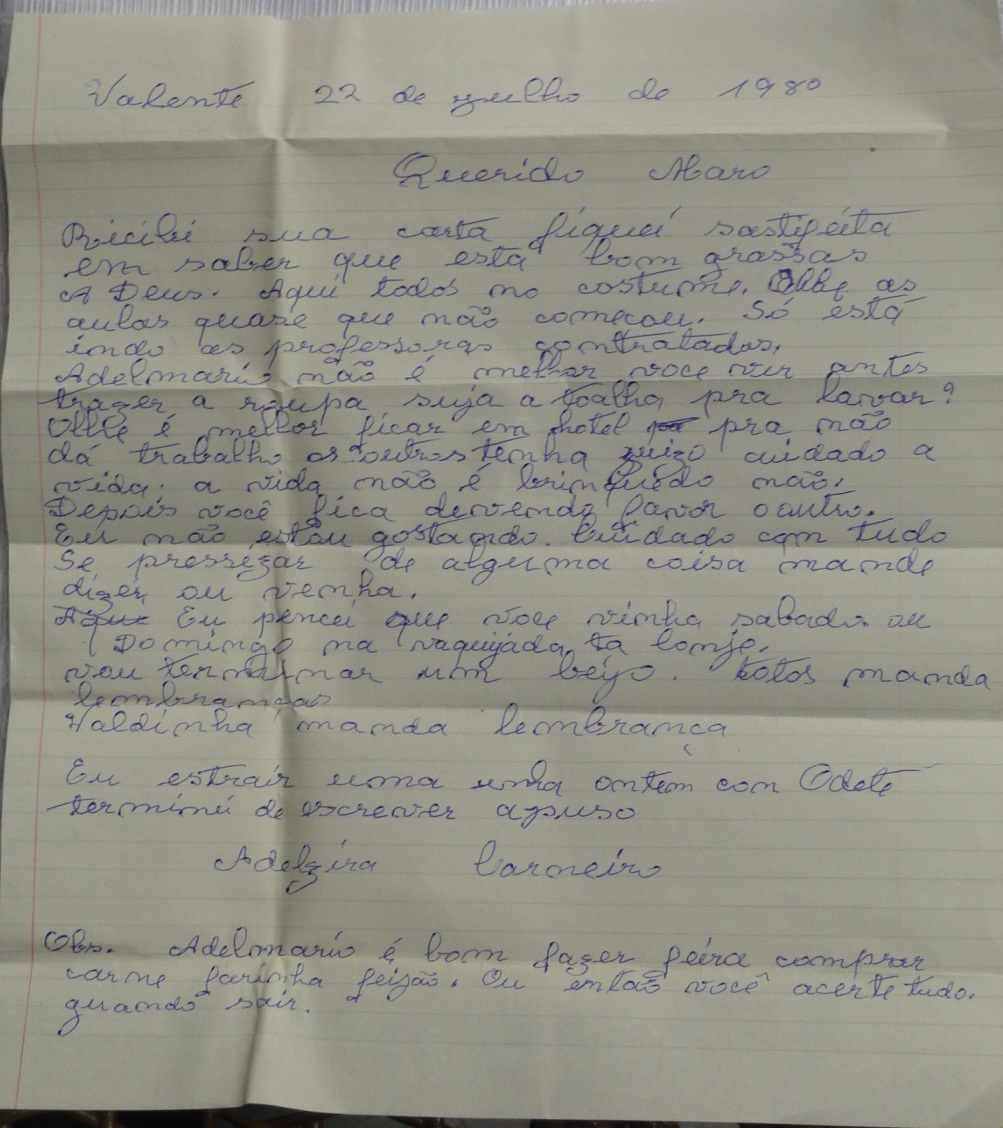 Valente 22 de julho de 1980
Querido Maro
Ricibi sua carta fiquei sastifeita
em saber que está bom grassas
A Deus. Aqui todos no costume. Olhe as
aulas quase que não começou. Só está
indo as professoras contratadas,
Adelmario não é melhor voce vir antes
trazer a roupa suja a toalha pra lavar?
Olhe é melhor ficar em hotel pra não
dá trabalho os outros tenha juizo cuidado a
vida. a vida não é brinquedo não,
Depois você fica devendo favor o outro.
Eu não estou gostando. Cuidado com tudo
Se pressizar de alguma coisa mande
dizer ou venha.
Aqui Eu pencei que voce vinha sabado ou
Domingo na vaquijada, ta lonje,
vou terminar um beijo. totos manda
lembranças
Valdinha manda lembrança
Eu estrair uma unha ontem com Odete
terminei de escrever apuso
Adelzira Carneiro
Obs. Adelmario é bom fazer feira comprar
carne farinha feijão. Ou então você acerte tudo.
quando sair.